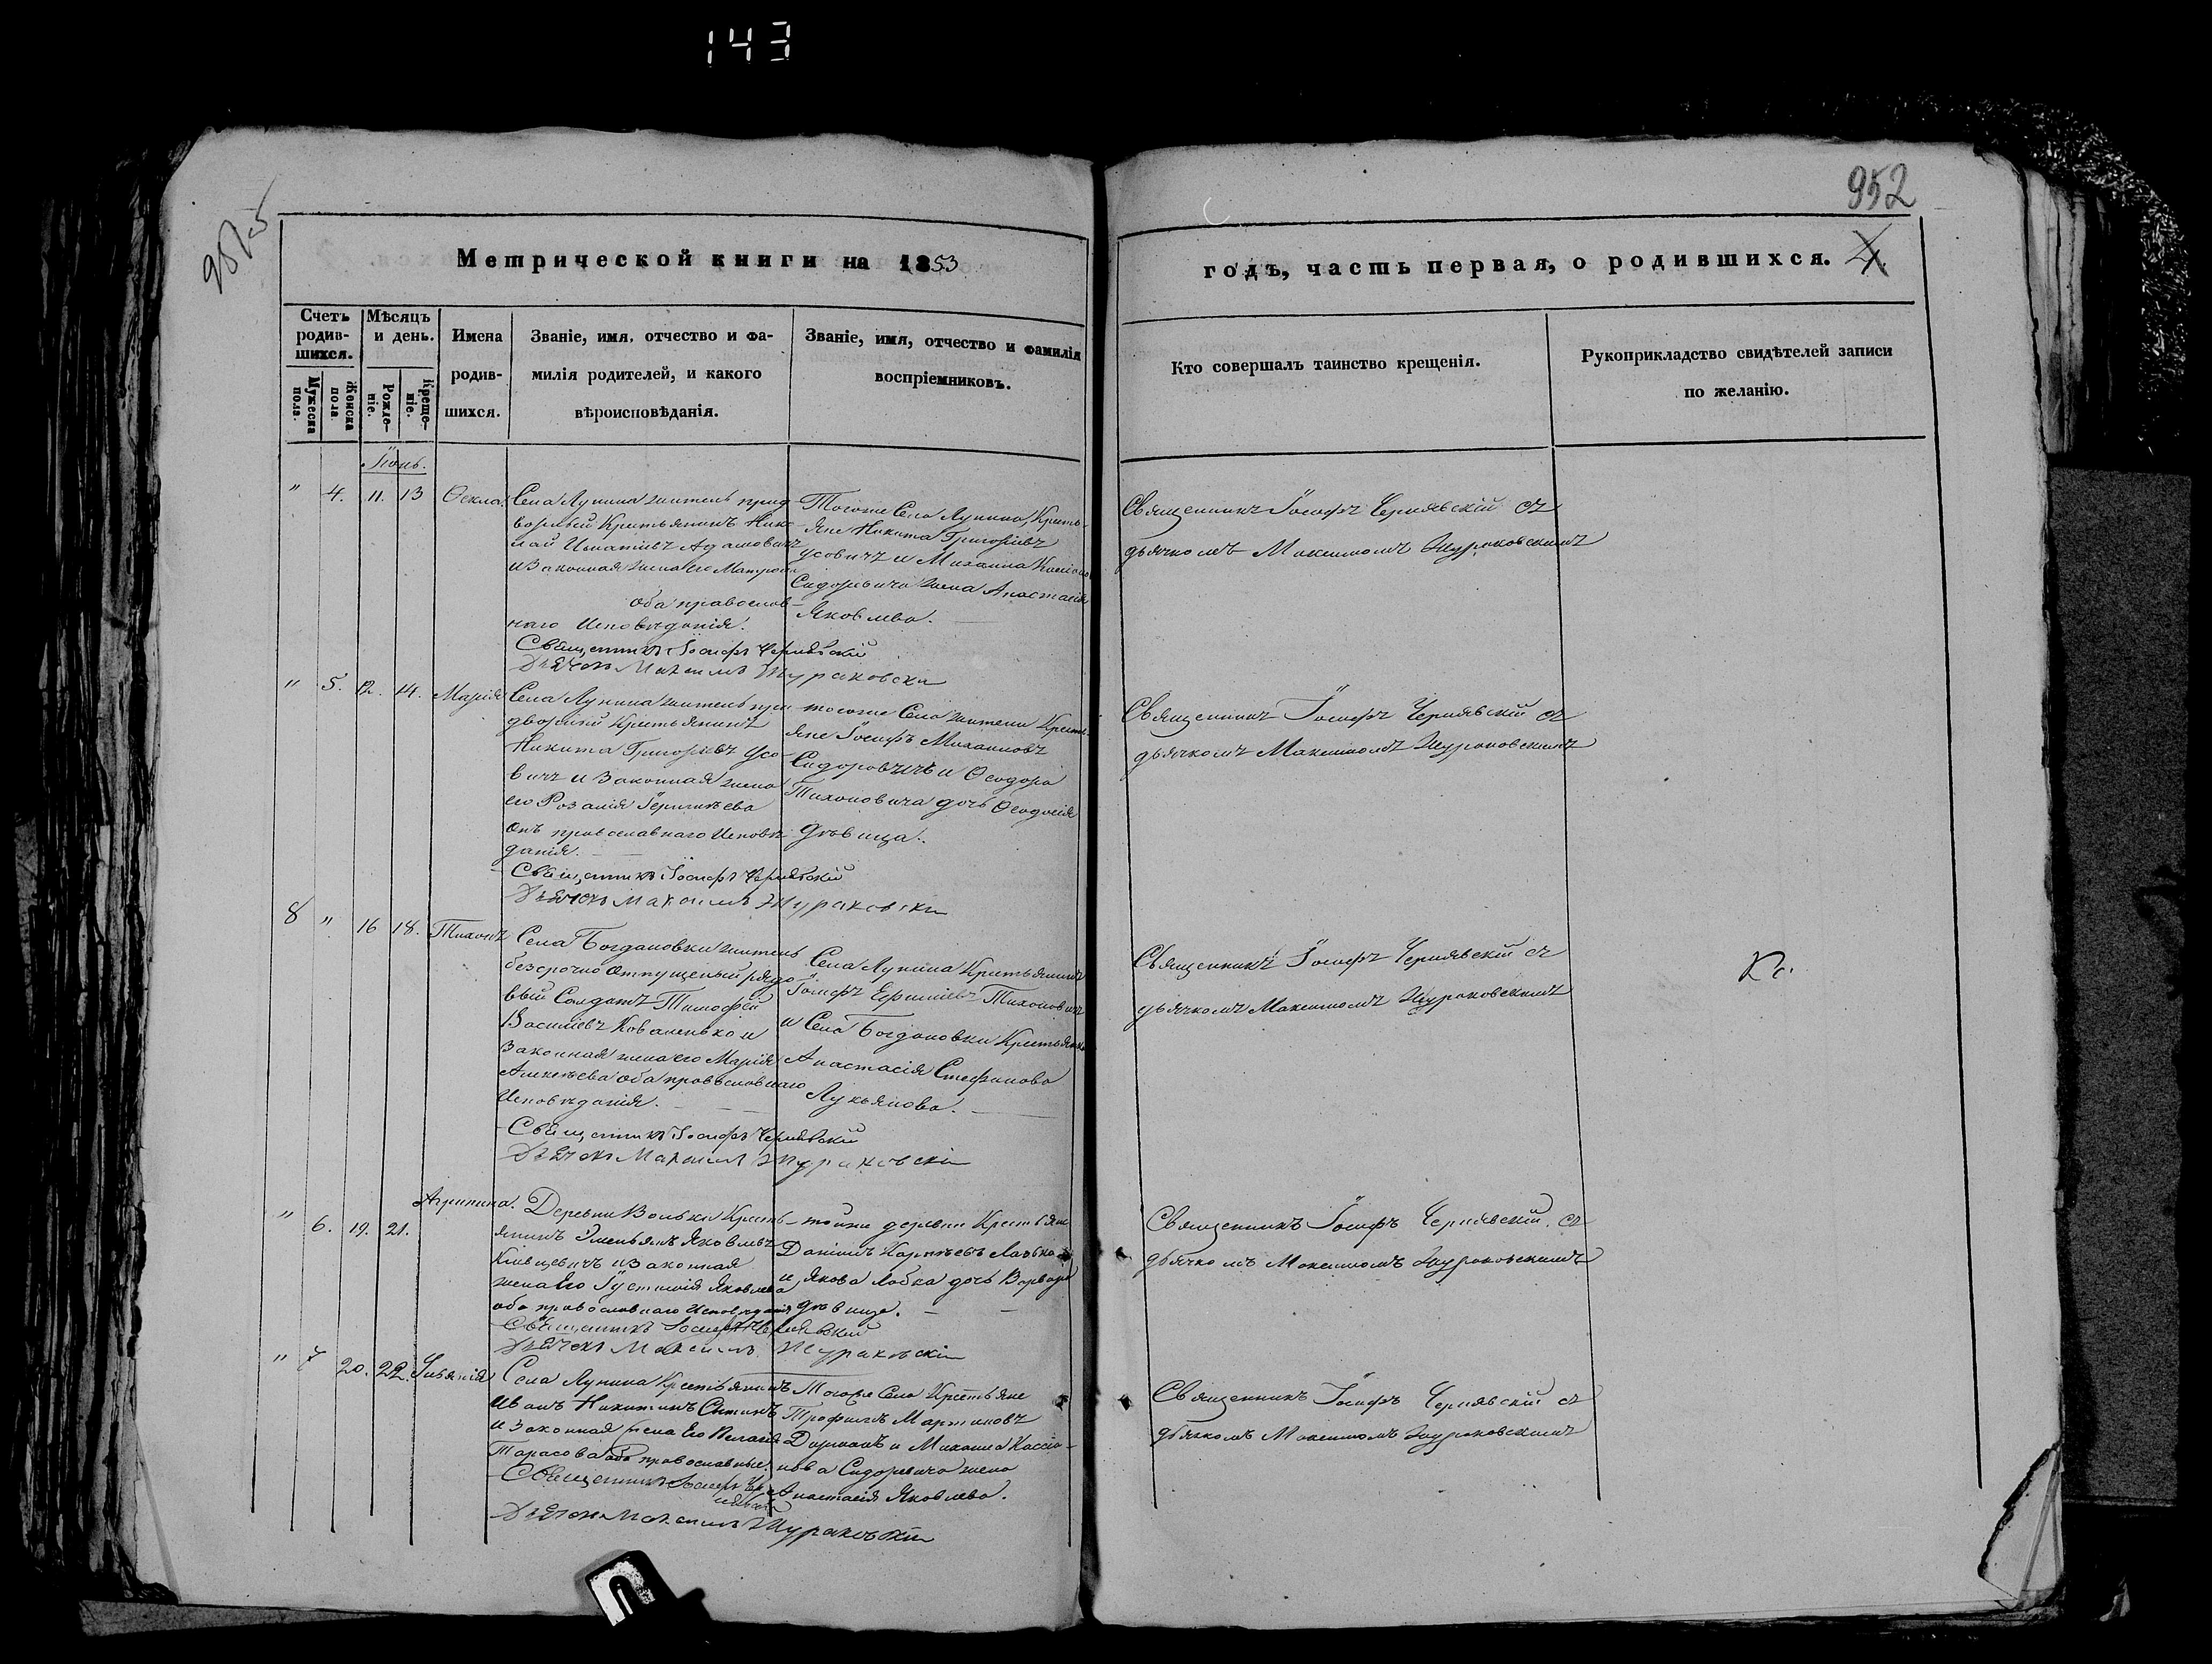 143
952
Метрической книги на 1853
годъ, часть первая, о родившихся.
Счетъ родив-шихся.
Мужеска пола.
Женска пола
Мѣсяцъ и день.
Рожде-ніе.
Креще-ніе.
Имена родив-шихся.
Званіе, имя, отчество и фа-
милія родителей, и какого
вѣроисповѣданія.
Званіе, имя, отчество и фамилія
воспріемниковъ.
Кто совершалъ таинство крещенія.
Рукоприкладство свидѣтелей записи
по желанію.
Іюнь.
" 4. 11. 13 Ѳекла
Села Лунина житель прид-
ворный Крестьянинъ Нико-
лай Игнатіевъ Адамовичъ
и законная жена его
оба православ-
наго Исповѣданія.
Священникъ Іосифъ Чернявскій
Дьячокъ Максимъ Жураковски
Тогоже Села Лунина, Кресть-
яне Никита Григоріевъ
Усовичъ и Михаила
Сидоревича жена Анастасія
Яковлева.
Священникъ Іосифъ Чернявскій съ
дьячкомъ Максимомъ Жураковскимъ
" 5. 12. 14. Марія
Села Лунина житель при-
дворный Крестьянинъ
Никита Григоріевъ Усо-
вичъ и законная жена
его Розалія
онъ православнаго Исповѣ-
данія.
Священникъ Іосифъ Чернявскій
Дьячокъ Максимъ Жураковски
тогоже Села жители Кресть-
яне Іосифъ Михаиловъ
Сидоровичъ и Ѳеодора
Тихоновича дочь Ѳеодосія
дѣвица.
Священникъ Іосифъ Чернявскій съ
дьячкомъ Максимомъ Жураковскимъ
8 " 16 18. Тихонъ
Села Богдановки житель
безсрочно отпущеный рядо-
вый Солдатъ Тимофей
Василіевъ Коваленько и
законная жена его Марія
Алексѣева оба православнаго
Исповѣданія.
Священникъ Іосифъ Чернявскій
Дьячокъ Максимъ Жураковскій
Села Лунина Крестьянинъ
Іосифъ Ефиміевъ Тихоновичъ
и Села Богдановки Крестьянка
Анастасія Стефанова
Лукьянова.
Священникъ Іосифъ Чернявскій съ
дьячкомъ Максимомъ Жураковскимъ
" 6. 19. 21. Агрипина.
Деревни Вольки Кресть-
янинъ Емельянъ Яковлевъ
и законная
жена Его Іустинія Яковлева
оба православнаго Исповѣданія
Священникъ Іосифъ Чернявскій
Дьячокъ Максимъ Жураковскій
тойже деревни Крестьяне
Даніилъ Карпѣевъ
и Якова Лобка дочь Варвара
дѣвица.
Священникъ Іосифъ Чернявскій съ
дьячкомъ Максимомъ Жураковскимъ
" 7 20. 22. Ульянія
Села Лунина Крестьянинъ
Иванъ Никитинъ
и Законная жена Его Пелагія
Тарасова оба православные.
Священникъ Іосифъ Чер-
нявскій
Дьячокъ Максимъ Жураковскій
Тогоже Села Крестьяне
Трофимъ Мартиновъ
и Михаила Кассіа-
нова Сидоревича жена
Анастасія Яковлева.
Священникъ Іосифъ Чернявскій съ
дьячкомъ Максимомъ Жураковскимъ